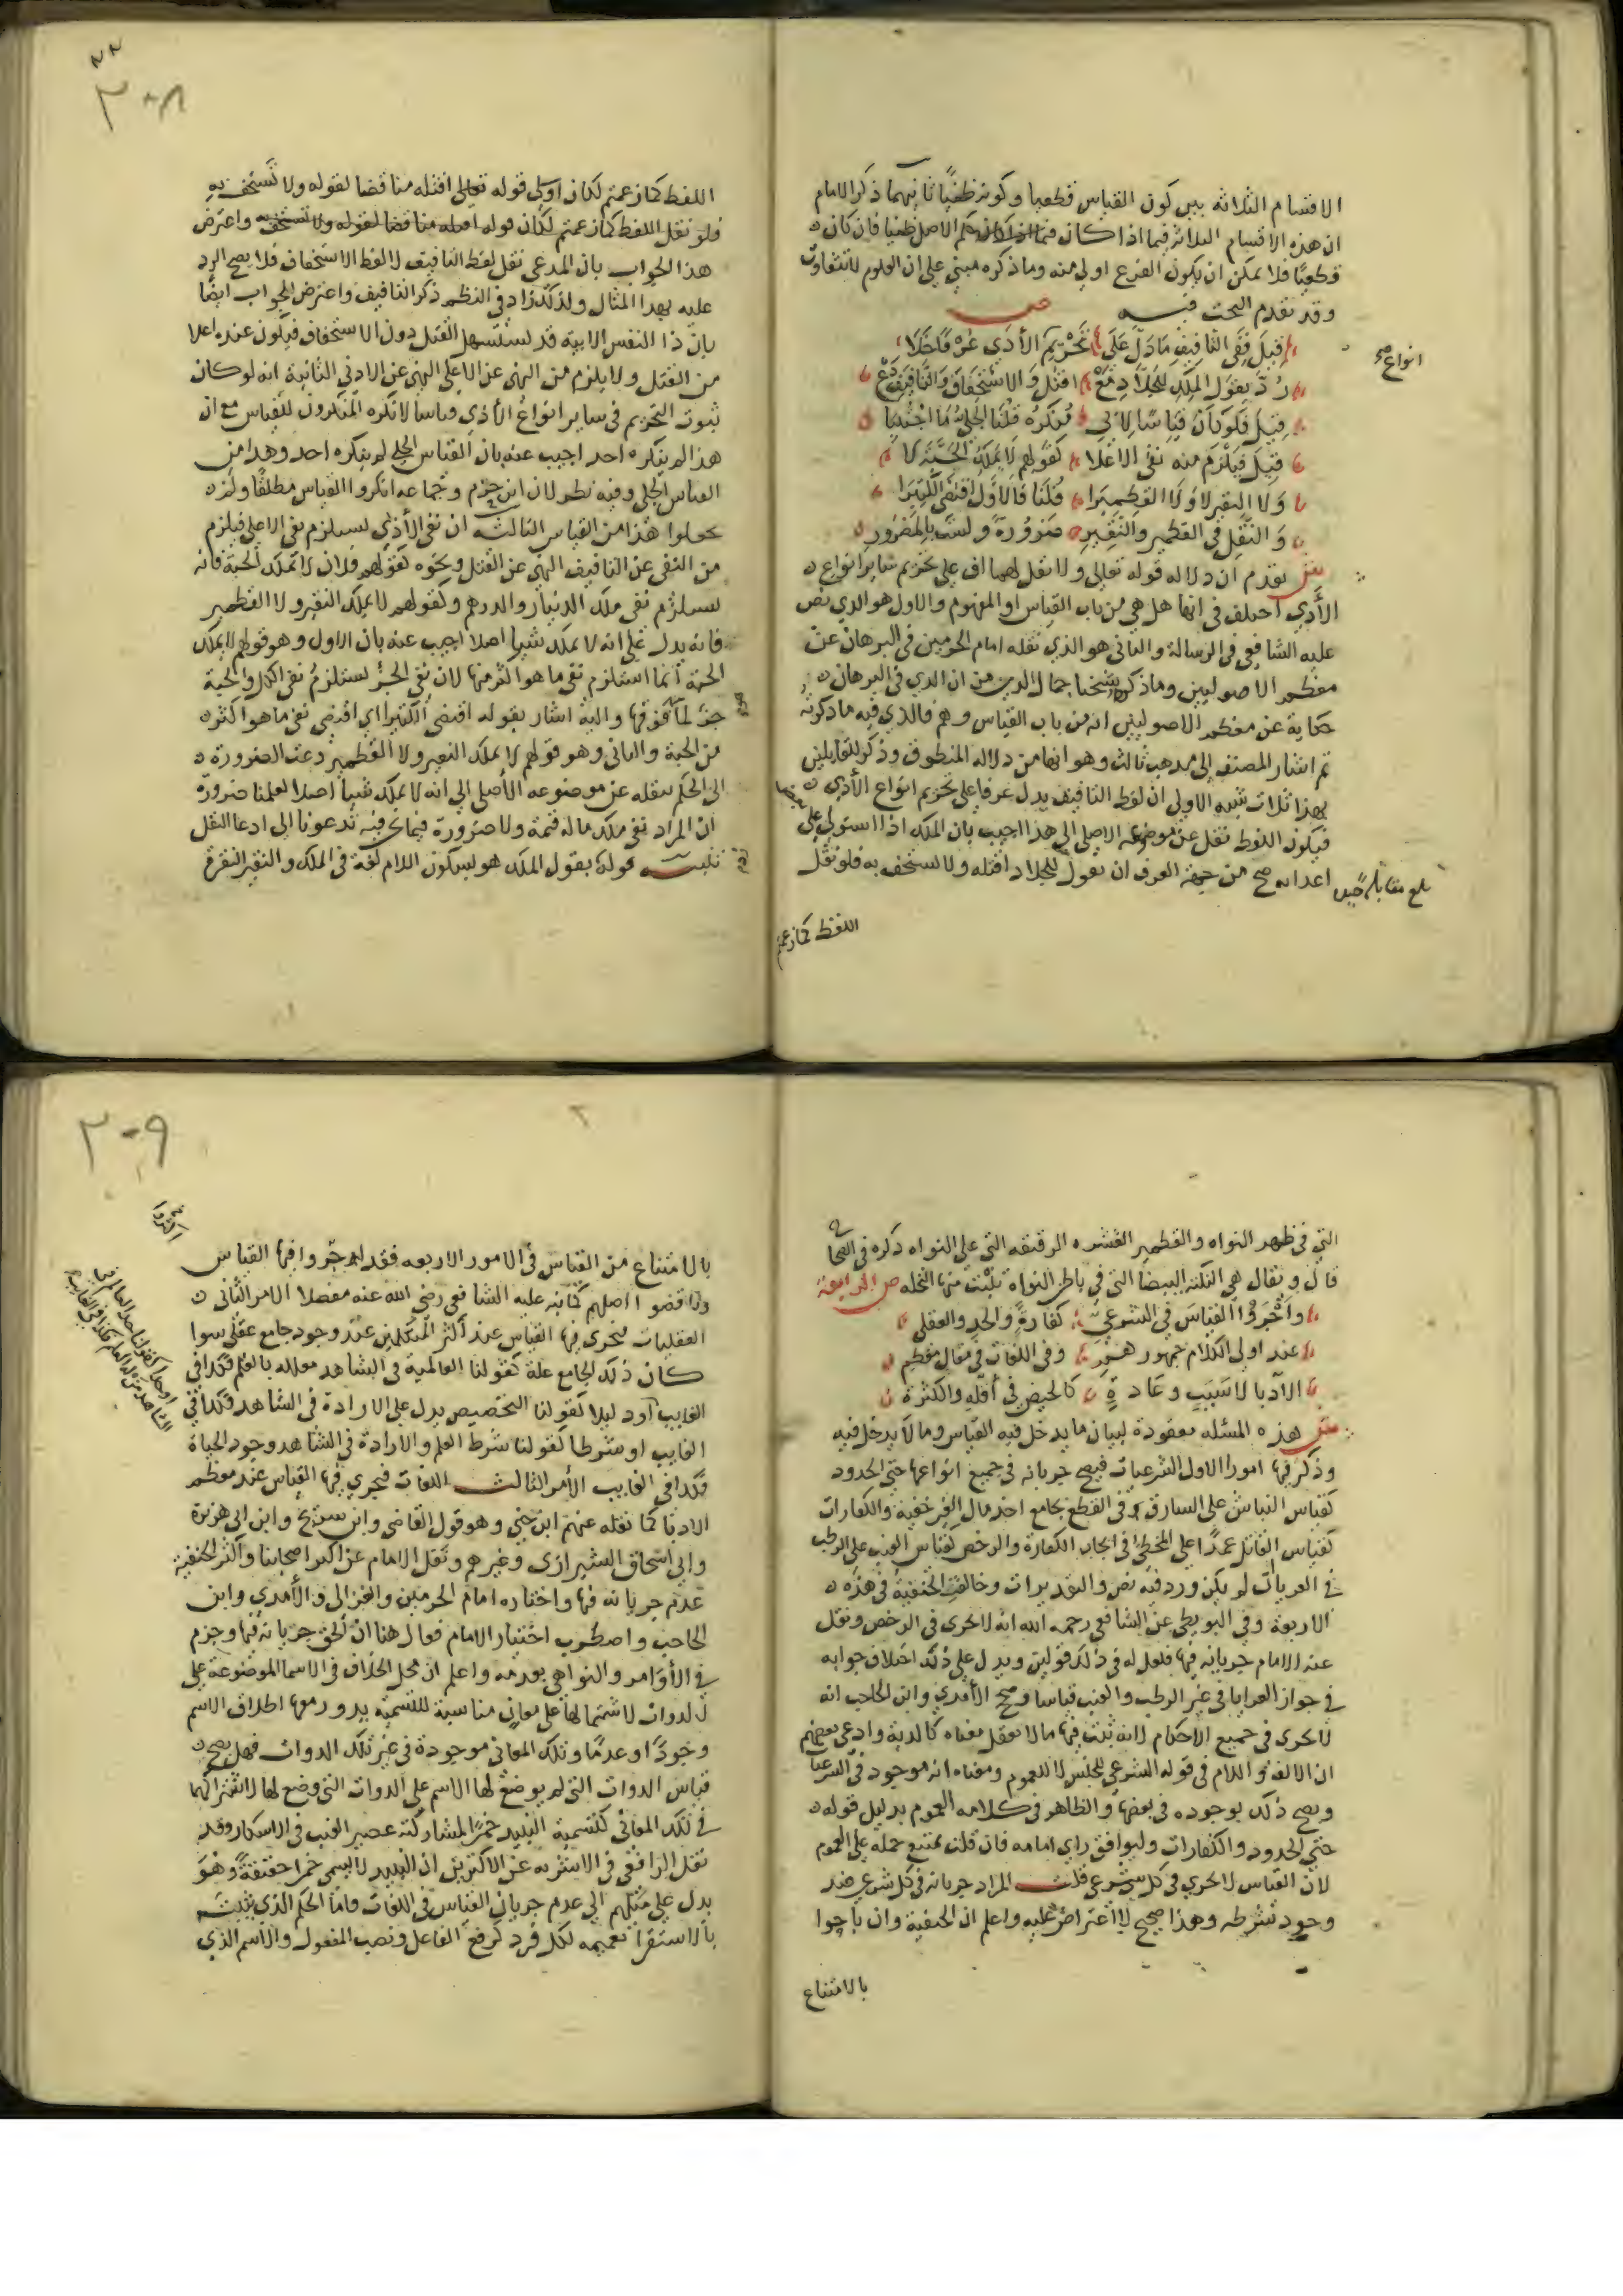 الاقسام الثلاثه بين كون القياس قطعيا وكونه ظنيا ثانيهما ذكر الامام
ان هذه الاقسام الثلاثه فيما اذا كان حكم الاصل ظنيا فان كان
قطعيا فلا يمكن ان يكون الفرع اولى منه وما ذكره مبني على ان العلوم لا تتفاوت
وقد تقدم البحث فيه ص
قيل ففي التافيف ما دل على تحريم الأذى عرفا
انواع صح
رد بقول الملك للجلاد مع اقتل والاستخفاف والتافيف دع
قيل فلو كان قياسا لابي منكره قلنا الجلي ما اجتبي
قيل فيلزم منه نفي الاعلا كقولهم لا يملك الحبة لا
ولا النقير لا ولا القطميرا قلنا فالاول اقتضى الكثيرا
والنقل في القطمير والنقير ضرورة وليست بالمضرور
ش تقدم ان دلاله قوله تعالى ولا تقل لهما اف على تحريم ساير انواع
الأذى اختلف في انها هل هي من باب القياس او المفهوم والاول هو الذي نص
عليه الشافعي في الرسالة والثاني هو الذي نقله امام الحرمين في البرهان عن
معظم الاصوليين وما ذكره شيخنا جمال الدين من ان الذي في البرهان
حكاية عن معظم الاصوليين انه من باب القياس وهم فالذي فيه ما ذكرته
ثم اشار المصنف الى مذهب ثالث وهو انها من دلاله المنطوق وذكر للقايلين
بهذا ثلاث شبه الاولى ان لفظ التافيف يدل عرفا على تحريم انواع الأذى
فيكون اللفظ نقل عن موضوعه الاصلي الى هذا اجيب بان الملك اذا استولى على
اعدايه صح من جهة العرف ان يقول للجلاد اقتله ولا تستخف به فلو نقل
بلغ مقابلة
اللفظ كما زعمتم
٢٠٨
اللفظ كما زعمتم لكان اولى قوله تعالى اقتله مناقضا لقوله ولا تستخف به
فلو نقل اللفظ كما زعمتم لكان قوله اقتله مناقضا لقوله ولا تستخف به واعترض
هذا الجواب بان المدعى نقل لفظ التافيف لا لفظ الاستخفاف فلا يصح الرد
عليه بهذا المثال ولذلك زاد في النظم ذكر التافيف واعترض الجواب ايضا
بان ذا النفس الابية قد يستسهل القتل دون الاستخفاف فيكون عنده اعلا
من القتل ولا يلزم من النهي عن الاعلى النهي عن الادنى الثانية انه لو كان
ثبوت التحريم في ساير انواع الأذى قياسا لانكره المنكرون للقياس مع ان
هذا لم ينكره احد اجيب عنه بان القياس الجلي لم ينكره احد وهذا من
القياس الجلي وفيه نظر لان ابن حزم وجماعة انكروا القياس مطلقا ولم
يجعلوا هذا من القياس الثالث ان نفي الأذى يستلزم نفي الاعلى فيلزم
من النفي عن التافيف النهي عن القتل ونحوه كقولهم فلان لا يملك الحبة فانه
يستلزم نفي ملك الدينار والدرهم وكقولهم لا يملك النقير ولا القطمير
فانه يدل على انه لا يملك شيئا اصلا اجيب عنه بان الاول وهو قولهم لا يملك
الحبة انما استلزم نفي ما هو اكثر منها لان نفي الجزء يستلزم نفي الكل والحبة
جزء لما فوقها واليه اشار بقوله اقتضى الكثيرا اي اقتضى نفي ما هو اكثر
من الحبة والثاني وهو قولهم لا يملك النقير ولا القطمير دعت الضرورة
الى الحكم بنقله عن موضوعه الأصلي الى انه لا يملك شيا اصلا لعلمنا ضرورة
ان المراد نفي ملك ماله قيمة ولا ضرورة فيما نحن فيه تدعونا الى ادعا النقل
تنبيه قوله يقول الملك هو بسكون اللام لغة في الملك والنقير النقرة
التي في ظهر النواه والقطمير القشره الرقيقه التي على النواه ذكره في الصحاح
قال ويقال هي النكتة البيضا التي في باطن النواه تنبت منها النخله ص الرابعة
واجروا القياس في الشرعي كفارة والحد والعقلي
عند اولي الكلام جمهورهم وفي اللغات في مقال معظم
الآدبا لا سبب وعادة كالحيض في أقله والكثرة
ش هذه المسئله معقودة لبيان ما يدخل فيه القياس وما لا يدخل فيه
وذكر فيها امورا الاول الشرعيات فيصح جريانه في جميع انواعها حتى الحدود
كقياس النباش على السارق في القطع بجامع اخذ مال الغير خفية والكفارات
كقياس القاتل عمدا على المخطئ في ايجاب الكفارة والرخص كقياس العنب على الرطب
في العرايا ان لو يكن ورد فيه نص والتقديرات وخالفت الحنفية في هذه
الاربعة وفي البويطي عن الشافعي رحمه الله انه لا يجري في الرخص ونقل
عنه الامام جريانه فيها فلعل له في ذلك قولين ويدل على ذلك اختلاف جوابه
في جواز العرايا في غير الرطب والعنب قياسا وصحح الأمدي وابن الحاجب انه
لا يجري في جميع الاحكام لانه ثبت فيها ما لا يعقل معناه كالدية وادعى بعضهم
ان الالف واللام في قوله الشرعي للجنس لا للعموم ومعناه انه موجود في الشرعيات
ويصح ذلك بوجوده في بعضها والظاهر في كلامه العموم بدليل قوله
حتى الحدود والكفارات وليوافق راي امامه فان قلت يمتنع حمله على العموم
لان القياس لا يجري في كل شرعي قلت المراد جريانه في كل شرعي عند
وجود شرطه وهذا صحيح لا اعتراض عليه واعلم ان الحنفية وان باحوا
بالامتناع
٢٠٩
بالامتناع من القياس في الامور الاربعه فقد اجروا فيها القياس
وناقضوا اصلهم كما نبه عليه الشافعي رضي الله عنه مفصلا الامر الثاني
العقليات فيجري فيها القياس عند أكثر المتكلمين عند وجود جامع عقلي سوا
كان ذلك الجامع علة كقولنا العالمية في الشاهد معلله بالعلم فكذا في
الغايب او دليلا كقولنا التخصيص يدل على الارادة في الشاهد فكذا في
الغايب او شرطا كقولنا شرط العلم والارادة في الشاهد وجود الحياة
فكذا في الغايب الأمر الثالث اللغات فيجري فيها القياس عند معظم
الادبا كما نقله عنهم ابن جني وهو قول القاضي وابن سريج وابن ابي هريرة
وابي اسحاق الشيرازي وغيرهم ونقل الامام عن اكثر اصحابنا وأكثر الحنفية
عدم جريانه فيها واختاره امام الحرمين والغزالي والأمدي وابن
الحاجب واضطرب اختيار الامام فقال هنا ان الحق جريانه فيها وجزم
في الأوامر والنواهي بعدمه واعلم ان محل الخلاف في الاسما الموضوعة على
الذوات لاشتمالها على معاني مناسبة للتسمية يدور معها اطلاق الاسم
وجودا وعدما وتلك المعاني موجودة في غير تلك الذوات فهل يصح
قياس الذوات التي لم يوضع لها الاسم على الذوات التي وضع لها لاشتراكهما
في تلك المعاني كتسمية النبيذ خمرا لمشاركته عصير العنب في الاسكار وقد
نقل الرافعي في الاشربه عن الاكثرين ان النبيذ لا يسمى خمرا حقيقة وهو
يدل على مثلهم الى عدم جريان القياس في اللغات فاما الحكم الذي يثبت
بالاستقرا تعميمه لكل فرد كرفع الفاعل ونصب المفعول والاسم الذي